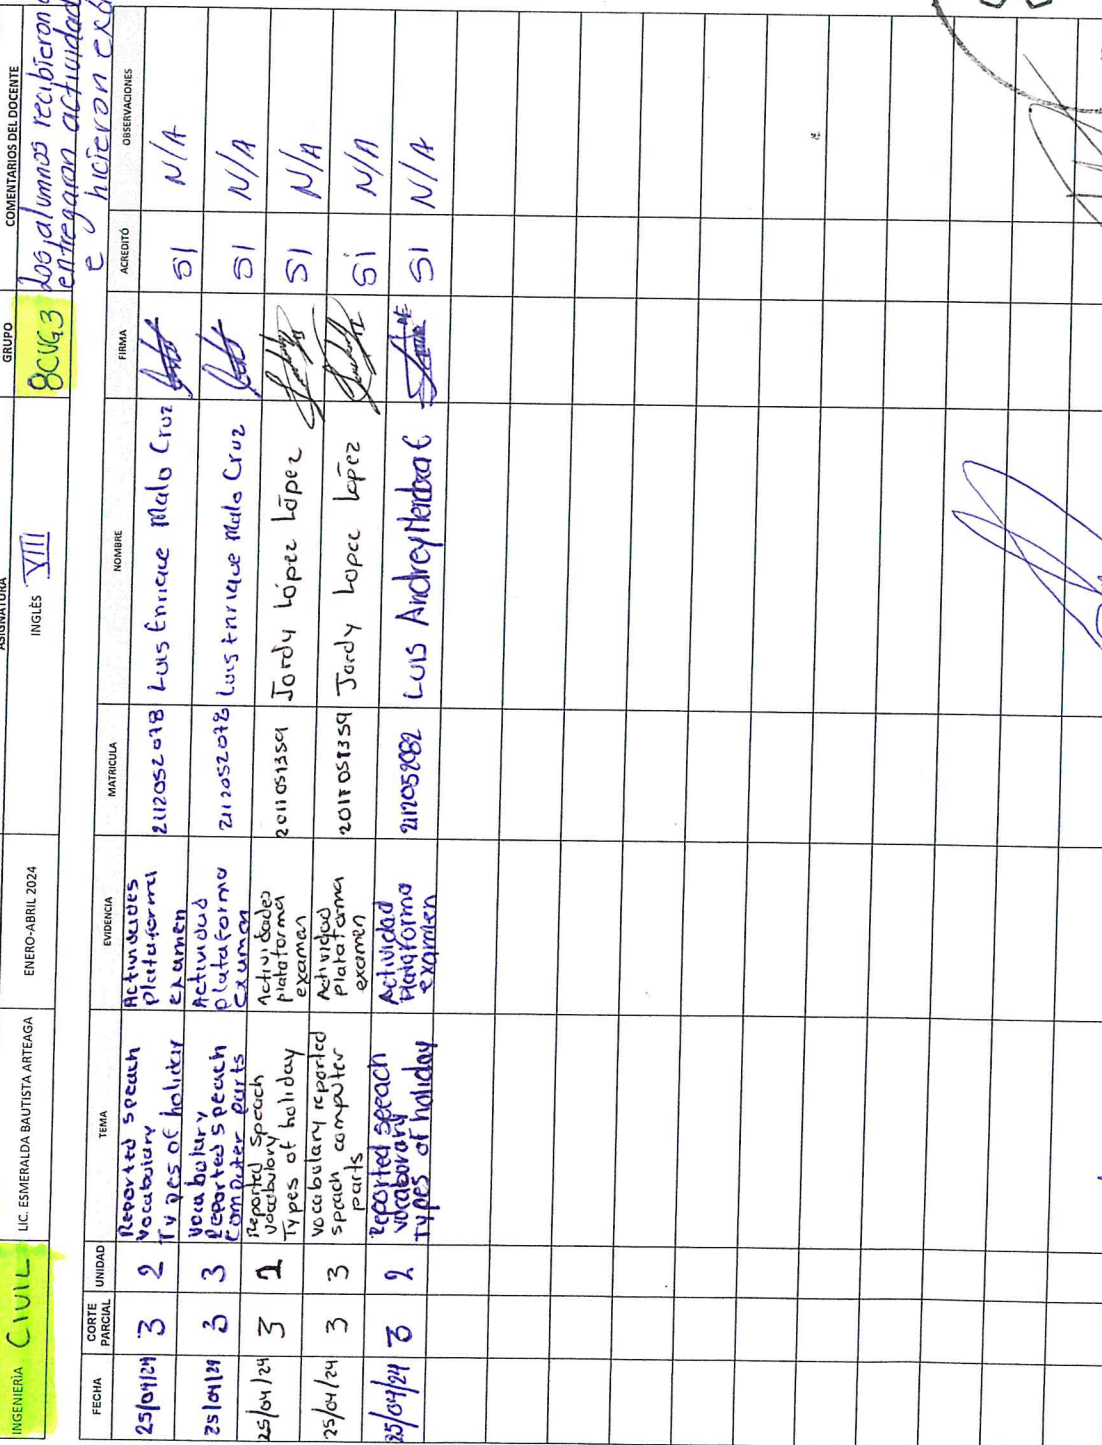 INGENIERÍA CIVIL
LIC. ESMERALDA BAUTISTA ARTEAGA
ENERO-ABRIL 2024
ASIGNATURA
INGLÉS VIII
GRUPO
8CVG3
COMENTARIOS DEL DOCENTE
Los alumnos recibieron
entregaron actividad
e hicieron exá
FECHA CORTE PARCIAL UNIDAD TEMA EVIDENCIA MATRICULA NOMBRE FIRMA ACREDITÓ OBSERVACIONES
25/04/24 3 2 Reported speach vocabulary Types of holiday Actividades plataforma examen 2112052078 Luis Enrique Malo Cruz SI N/A
25/04/24 3 3 Vocabulary Reported speach Computer parts Actividad plataforma examen 2112052078 Luis Enrique Malo Cruz SI N/A
25/04/24 3 Reported speach vocabulary Types of holiday Actividades plataforma examen 2011051359 Jordy López López SI N/A
25/04/24 3 3 vocabulary reported speach computer parts Actividad plataforma examen Jordy Lopez López Si N/A
25/04/24 3 2 Reported speach vocaborary Types of holiday Actividad Plataforma examen LUIS Andrey SI N/A